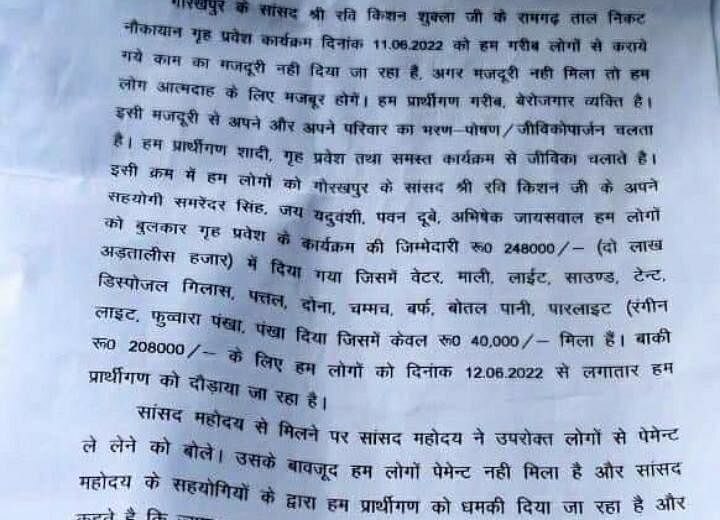 गोरखपुर के सांसद श्री रवि किशन शुक्ला जी के रामगढ़ ताल निकट
नौकायान गृह प्रवेश कार्यक्रम दिनांक 11.06.2022 को हम गरीब लोगों से कराये
गये काम का मजदूरी नही दिया जा रहा है, अगर मजदूरी नही मिला तो हम
लोग आत्मदाह के लिए मजबूर होगें। हम प्रार्थीगण गरीब, बेरोजगार व्यक्ति है।
इसी मजदूरी से अपने और अपने परिवार का भरण–पोषण/जीविकोपार्जन चलता
है। हम प्रार्थीगण शादी, गृह प्रवेश तथा समस्त कार्यक्रम से जीविका चलाते है।
इसी क्रम में हम लोगों को गोरखपुर के सांसद श्री रवि किशन जी के अपने
सहयोगी समरेंदर सिंह, जय यदुवंशी, पवन दूबे, अभिषेक जायसवाल हम लोगों
को बुलकार गृह प्रवेश के कार्यक्रम की जिम्मेदारी रू0 248000/– (दो लाख
अड़तालीस हजार) में दिया गया जिसमें वेटर, माली, लाईट, साउण्ड, टेन्ट,
डिस्पोजल गिलास, पत्तल, दोना, चम्मच, बर्फ, बोतल पानी, पारलाइट (रंगीन
लाइट, फुव्वारा पंखा, पंखा दिया जिसमें केवल रू0 40,000/– मिला हैं। बाकी
रू0 208000/– के लिए हम लोगों को दिनांक 12.06.2022 से लगातार हम
प्रार्थीगण को दौड़ाया जा रहा है।
सांसद महोदय से मिलने पर सांसद महोदय ने उपरोक्त लोगों से पेमेन्ट
ले लेने को बोले। उसके बावजूद हम लोगों पेमेन्ट नही मिला है और सांसद
महोदय के सहयोगियों के द्वारा हम प्रार्थीगण को धमकी दिया जा रहा है और
कहते है कि